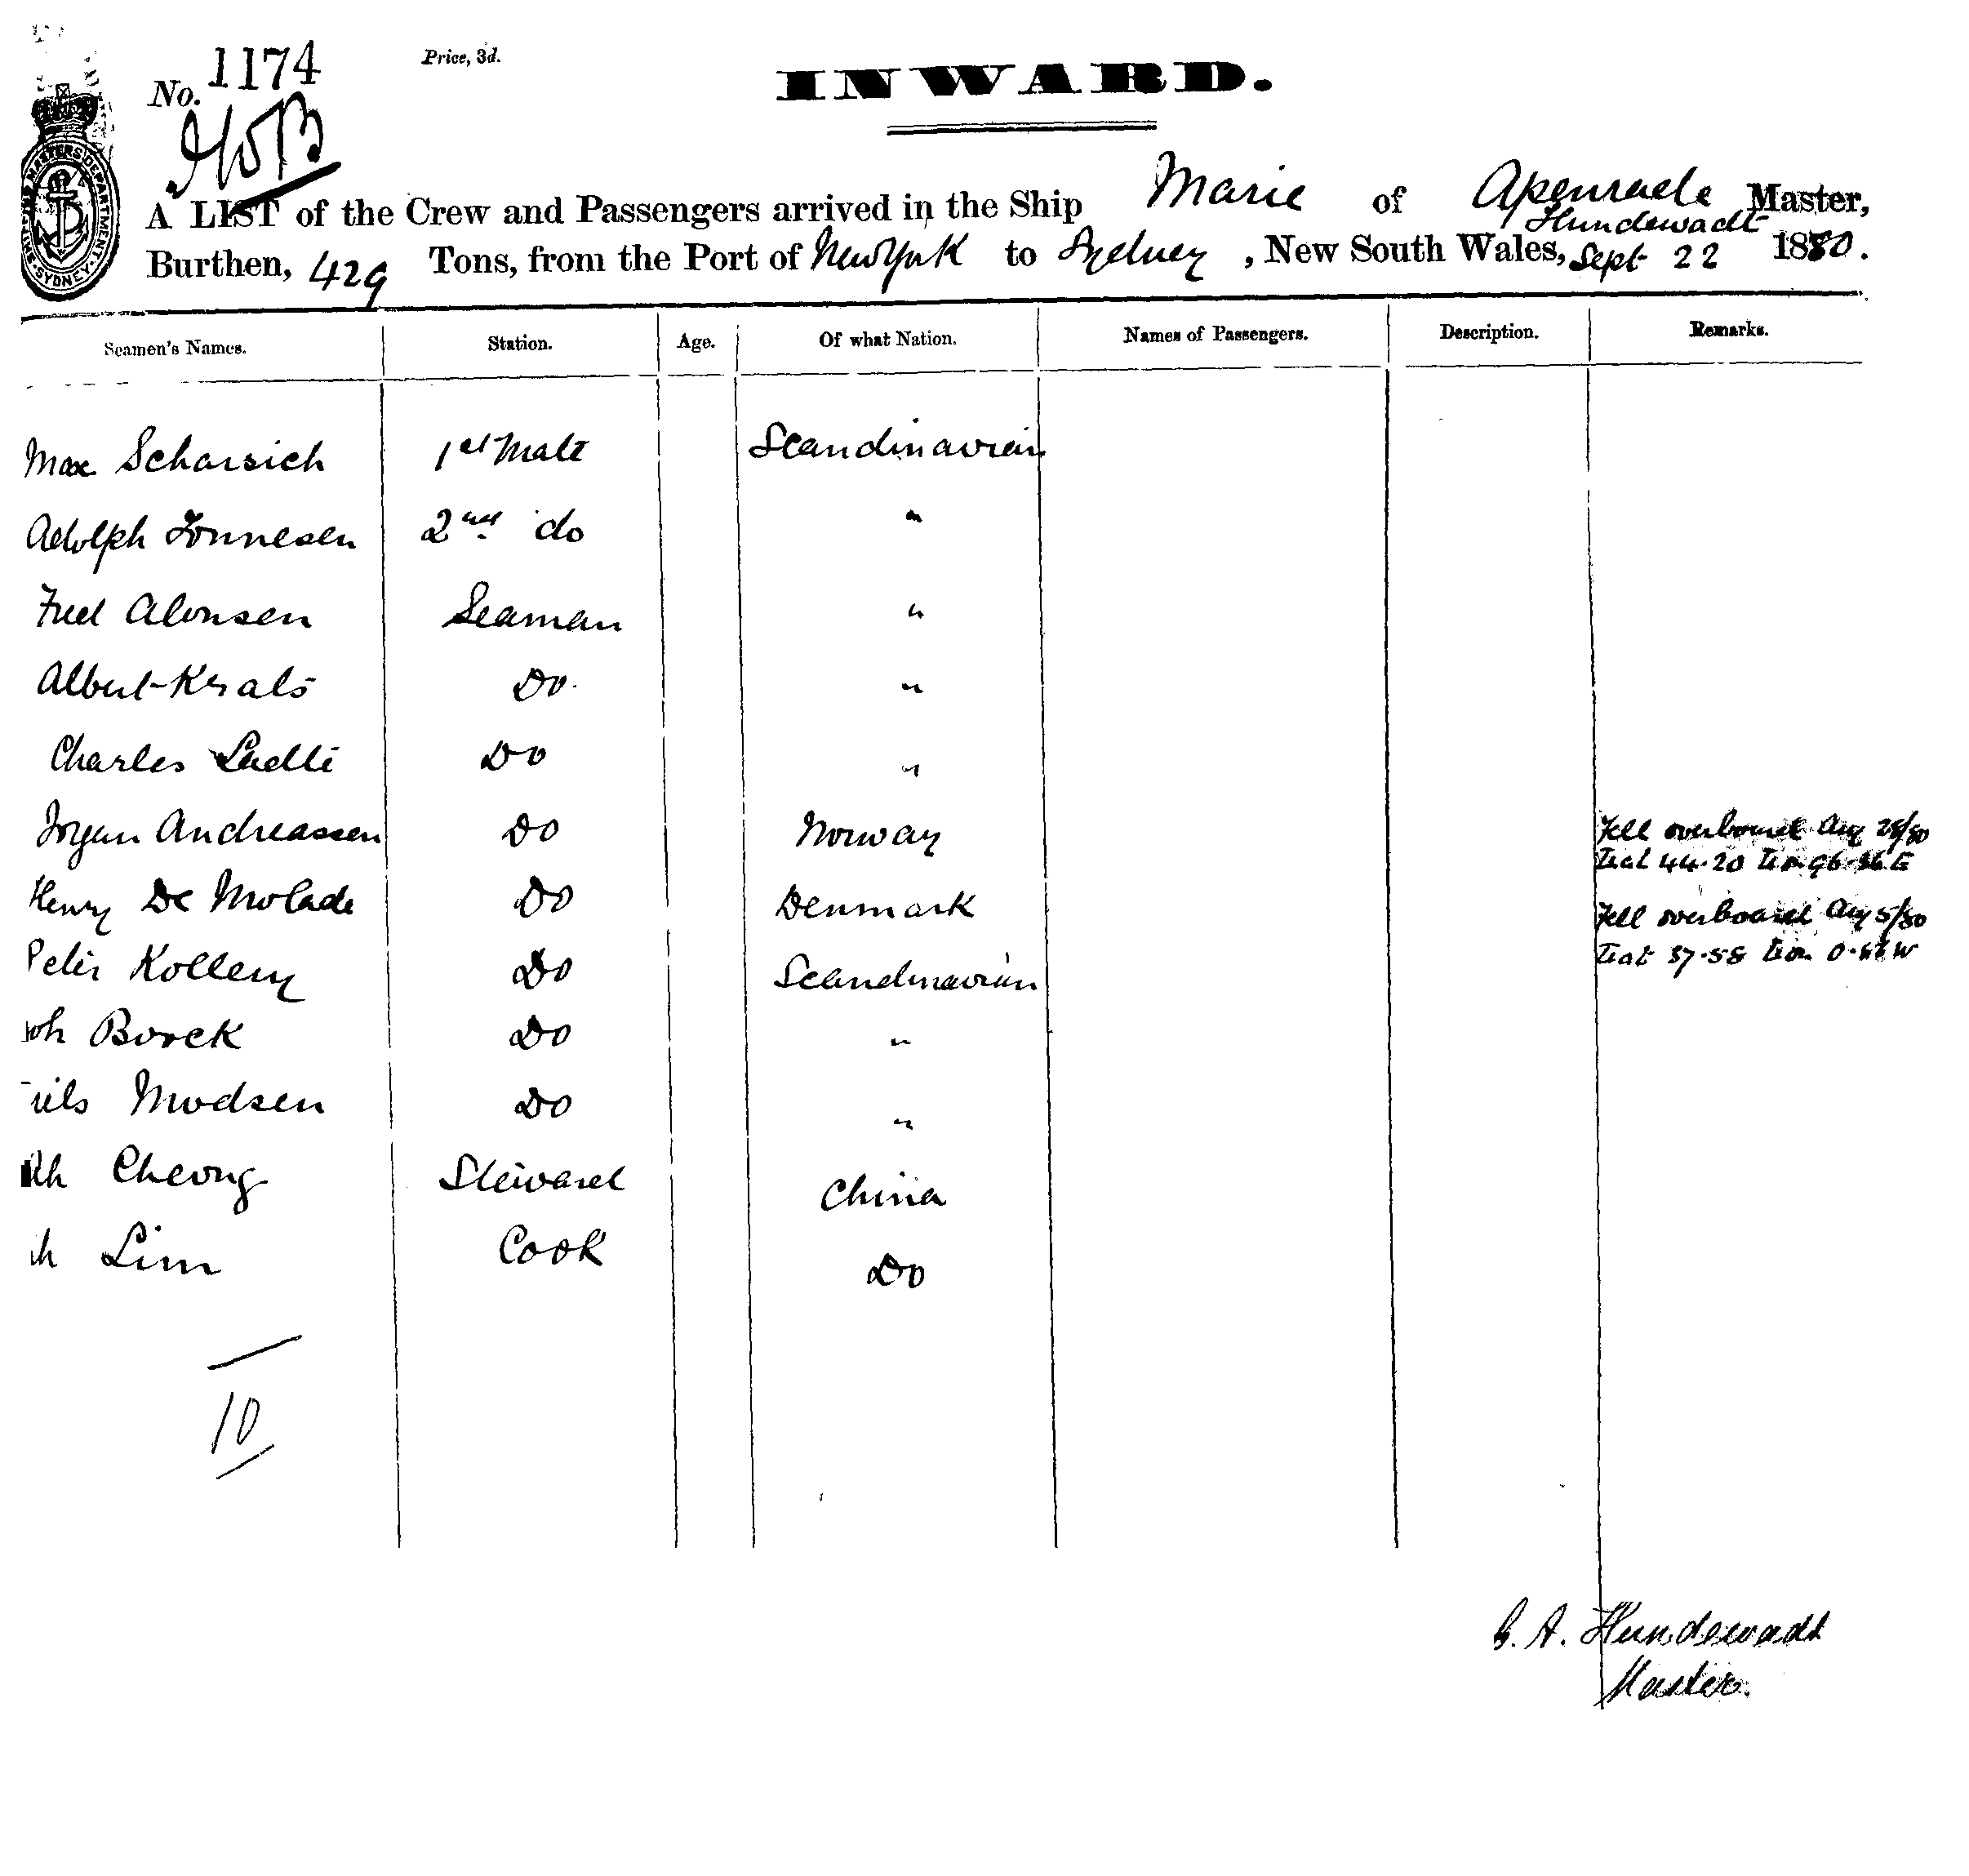 No. 1174
Price, 3d.
INWARD.
SHIPPING MASTERS DEPARTMENT SYDNEY
A LIST of the Crew and Passengers arrived in the Ship Marie of Apenrade Master,
Hundewadt
Burthen, 429 Tons, from the Port of New York to Sydney, New South Wales, Sept 22 1880.
Seamen's Names. Station. Age. Of what Nation. Names of Passengers. Description. Remarks.
Max Scharsich 1st Mate Scandinavian
Adolph Tonnesen 2nd do "
Fred Alonsen Seaman "
Albert Krals Do. "
Charles Do "
Jorgen Andreassen Do Norway Fell overboard Aug 28/80
Lat 44.20 Lon 96.36 E
Henry De Molade Do Denmark Fell overboard Aug 5/80
Lat 37.58 Lon W
Peter Kollem Do Scandinavian
Joh Borck Do "
Niels Modsen Do "
Ah Cheong Steward China
Ah Lim Cook Do
10
A. Hundewadt
Master.